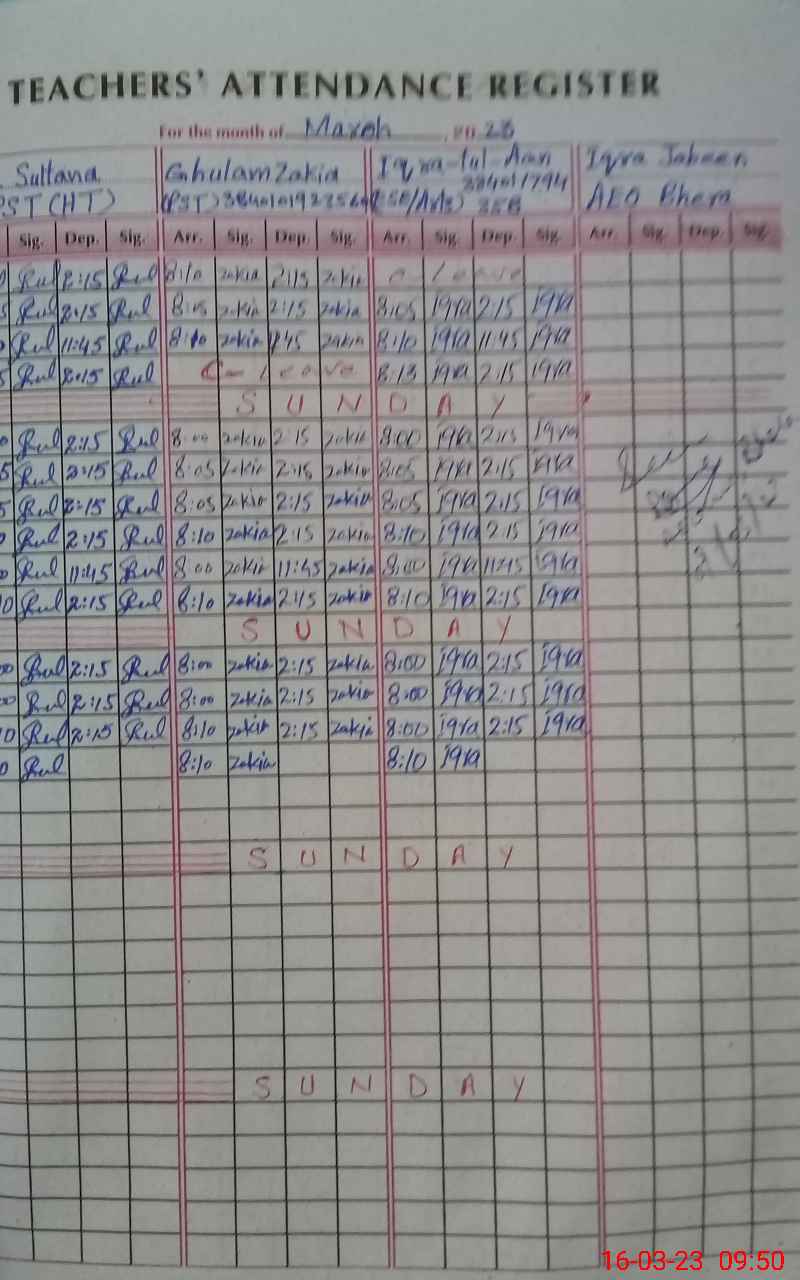 TEACHERS' ATTENDANCE REGISTER
For the month of March 20 23
Sultana Ghulam Zakia Iqra-tul-Aan Iqra Jabeen
PST (HT) (PST) (SSE/Arts) 358 AEO Bhera
Sig. Dep. Sig. Arr. Sig. Dep. Sig. Arr. Sig. Dep. Sig. Arr. Sig. Dep. Sig.
Rul 2:15 Rul 8:10 zakia 2:15 zakia C Leave
Rul 2:15 Rul 8:05 zakia 2:15 zakia 8:05 iqra 2:15 iqra
Rul 11:45 Rul 8:10 zakia 11:45 zakia 8:10 iqra 11:45 iqra
Rul 2:15 Rul C- Leave 8:13 iqra 2:15 iqra
S U N D A Y
Rul 2:15 Rul 8:00 zakia 2:15 zakia 8:00 iqra 2:15 iqra
Rul 2:15 Rul 8:05 zakia 2:15 zakia 8:05 iqra 2:15 iqra
Rul 2:15 Rul 8:05 zakia 2:15 zakia 8:05 iqra 2:15 iqra
Rul 2:15 Rul 8:10 zakia 2:15 zakia 8:10 iqra 2:15 iqra
Rul 11:45 Rul 8:00 zakia 11:45 zakia 8:00 iqra 11:45 iqra
Rul 2:15 Rul 8:10 zakia 2:15 zakia 8:10 iqra 2:15 iqra
S U N D A Y
Rul 2:15 Rul 8:00 zakia 2:15 zakia 8:00 iqra 2:15 iqra
Rul 2:15 Rul 8:00 zakia 2:15 zakia 8:00 iqra 2:15 iqra
Rul 2:15 Rul 8:10 zakia 2:15 zakia 8:00 iqra 2:15 iqra
Rul 8:10 zakia 8:10 iqra
S U N D A Y
S U N D A Y
16-03-23 09:50